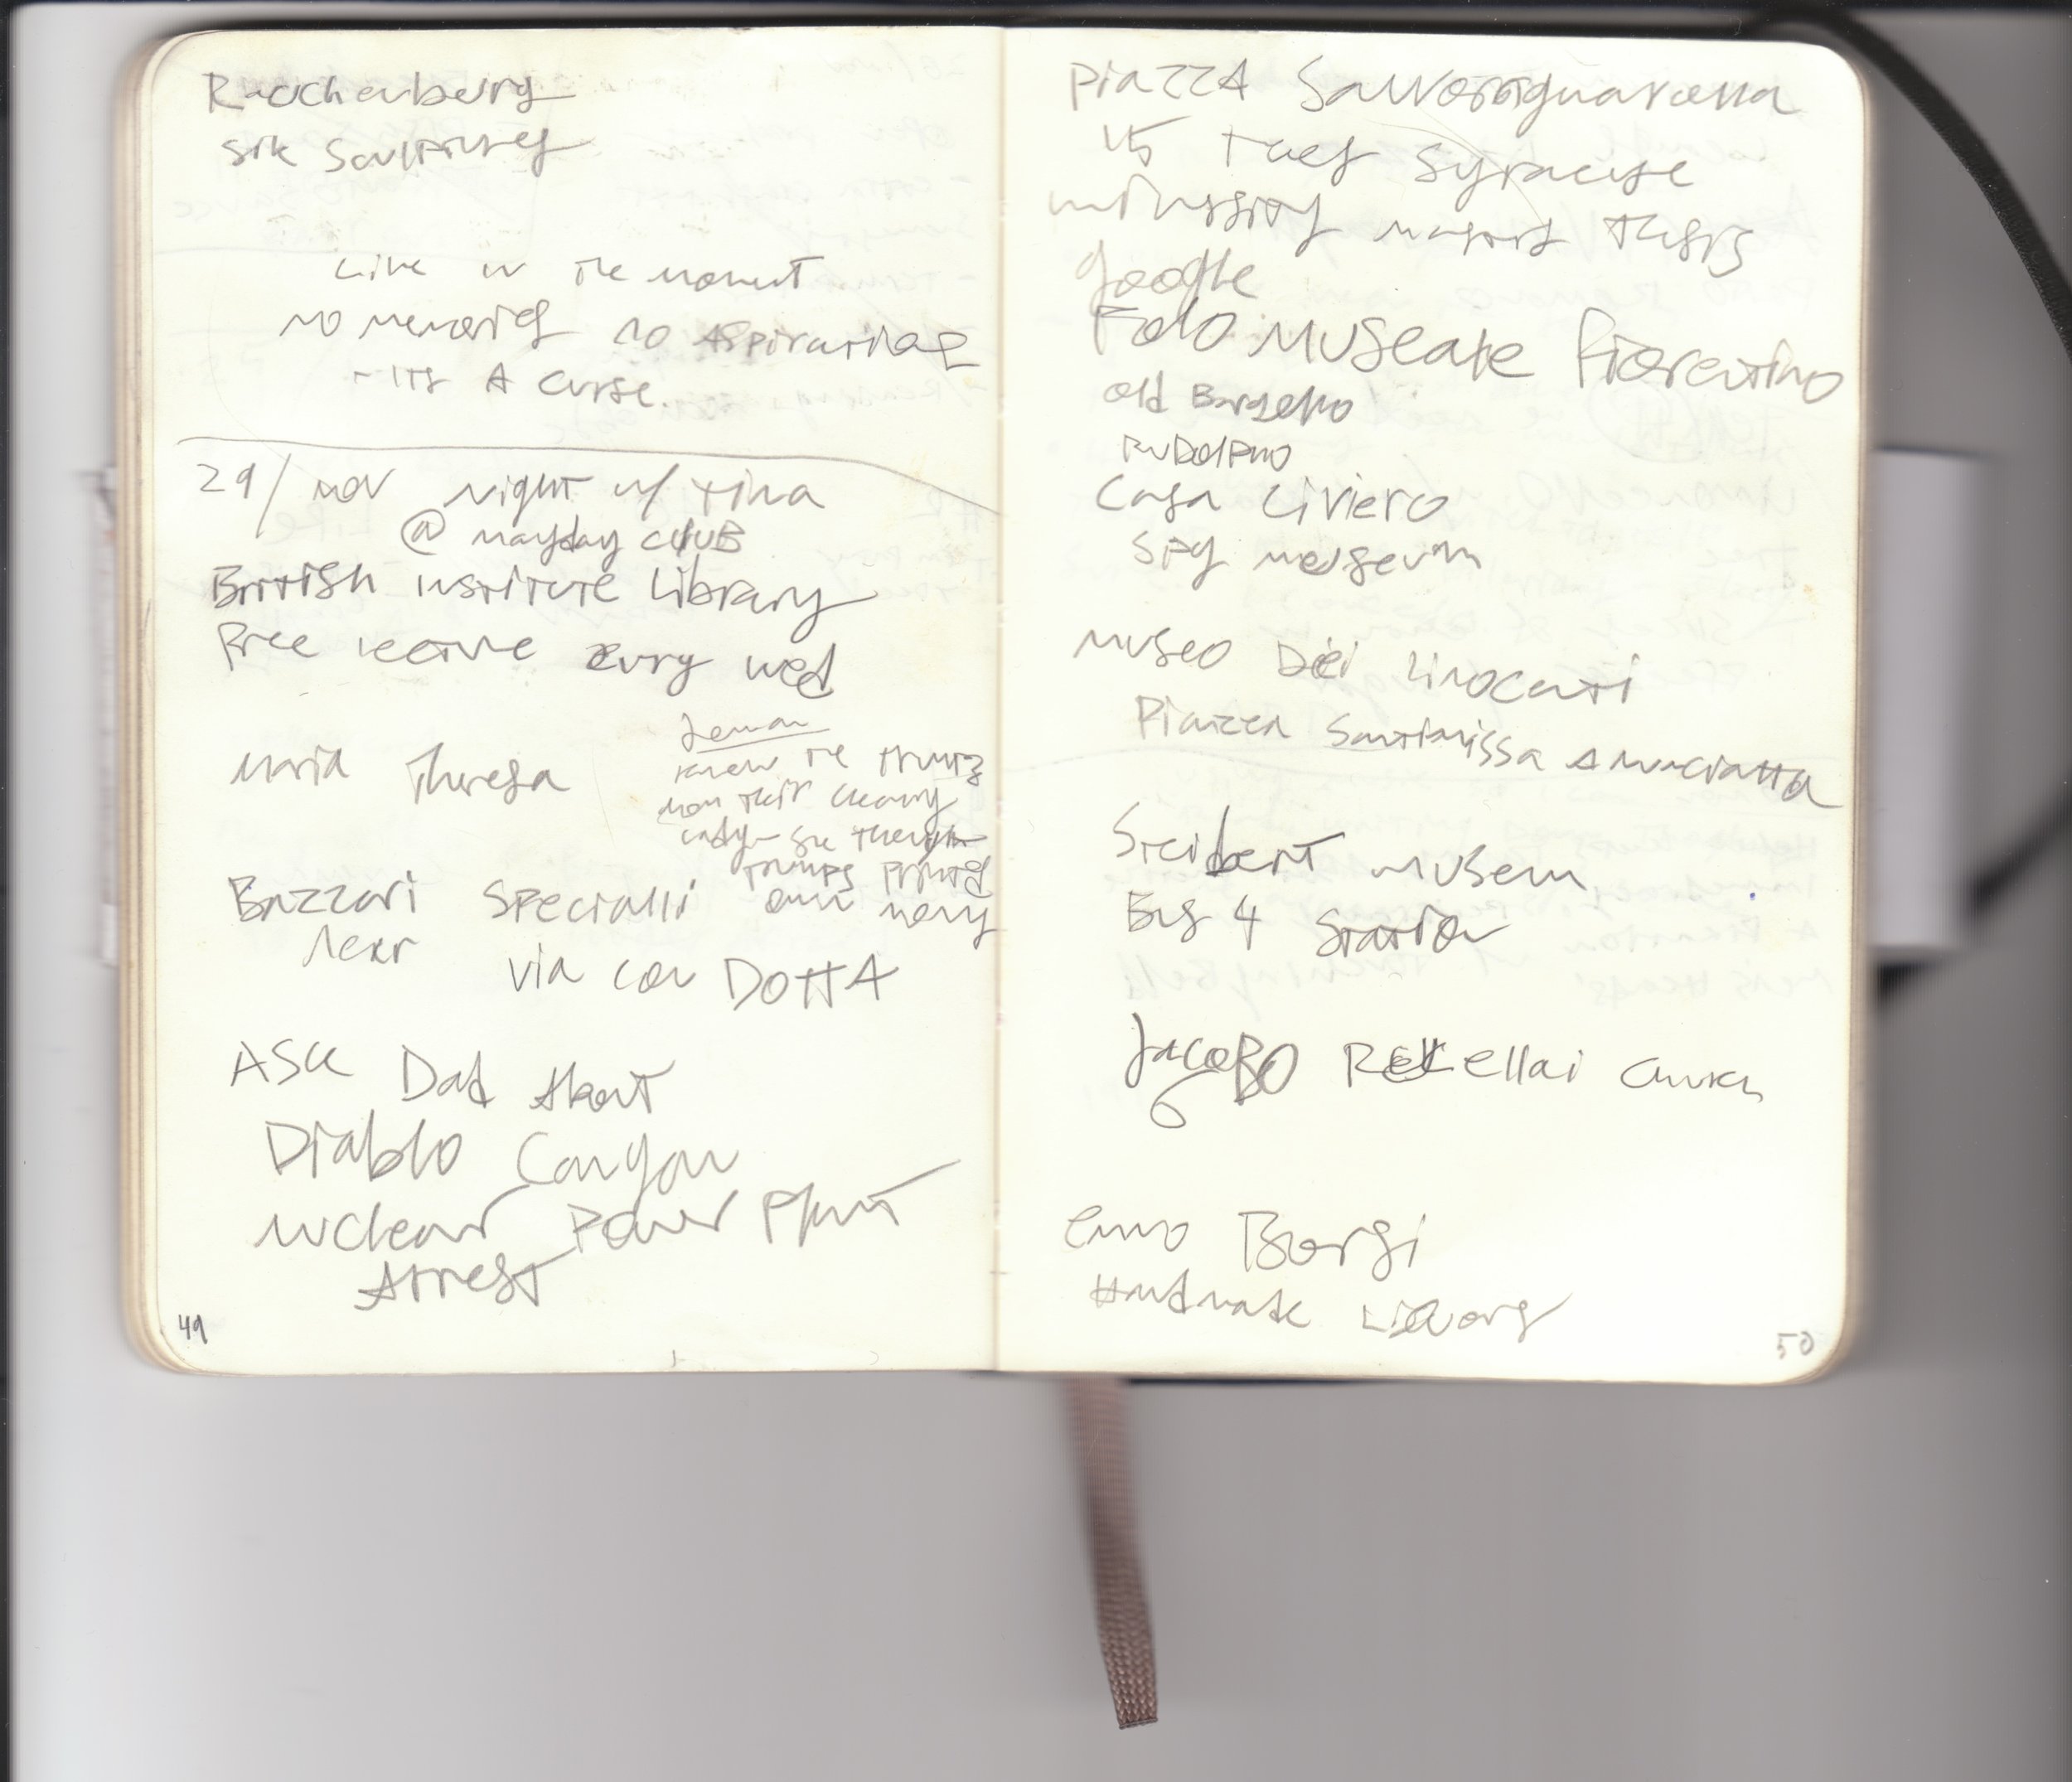 Rauchenberg
silk Sculptures
Live in the moment
no memories no Aspirations
- its A curse.
29/Nov Night w/ Tina
@ mayday CLUB
British institute Library
Free lecture every wed
Maria Theresa
knew the trumps
their cleaning
lady - she
trumps
own
Bazzari Specialli
near via con DOTTA
Ask Dad About
Diablo Canyon
Nuclear Power Plant
Arrest
49
PIAZZA
Syracuse
thesis
google
Polo Museale Fiorentino
old Bargello
RUDOLPHO
Casa Civiero
Spy museum
Museo Dei Linocenti
Piazza Santimissa Annunciatta
Steibert Musem
Bus 4 Station
JacoBO Rucellai Church
Enno Borgi
Handmade Liquors
50